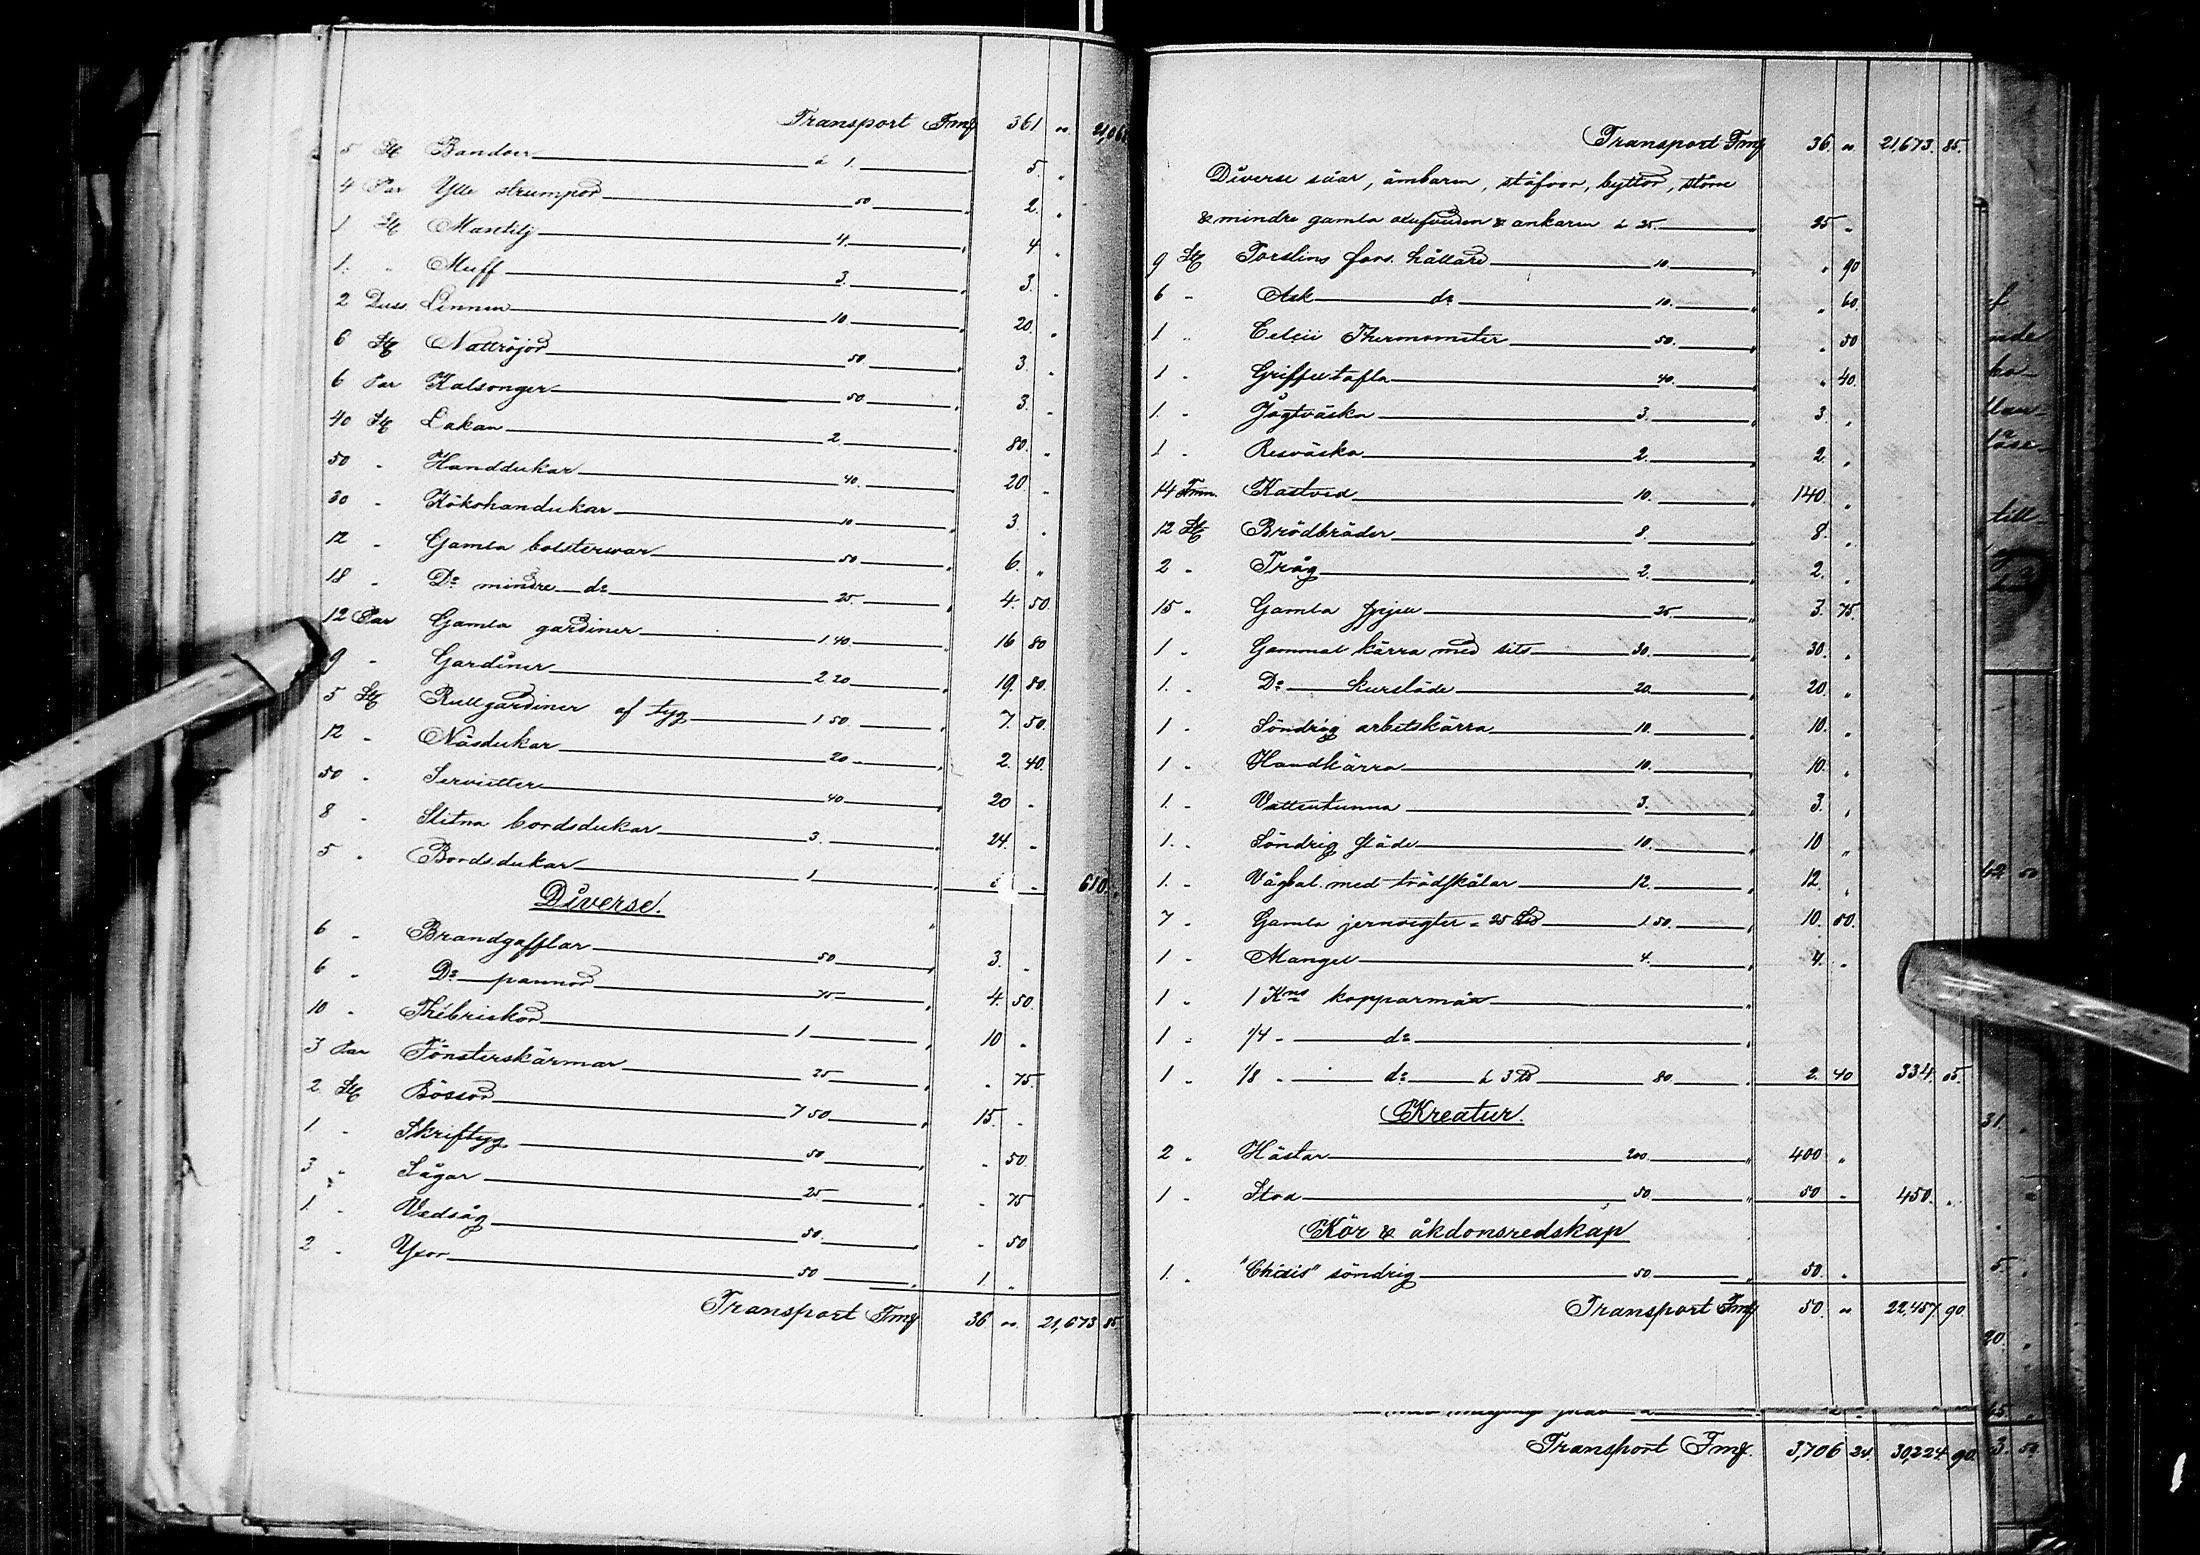 Transport Fmk 361 " 21,06
5 St Bandoer à 1. 5. "
4 Par Ylle strumpor 50 2. "
1 St Mantilj 4. 4 "
1. " Muff 3. 3. "
2 Duss. Linnen 10 20. "
6 St Nattröjor 50 3. "
6 Par Kalsonger 50 3. "
40 St Lakan 2 80. "
50 " Handdukar 40. 20. "
30 " Kökshandukar 10 3. "
12 " Gamla bolsterwar 50 6. "
18 " Do mindre do 25. 4. 50.
12 Par Gamla gardiner 1 40. 16 80
9 " Gardiner 2 20 19. 80.
5 St Rullgardiner af tyg 1 50. 7. 50.
12 " Näsdukar 20 2. 40.
50 " Servietter 40 20 "
8 " Slitna bordsdukar 3. 24. "
5 " Bordsdukar 1 " 610. "
Diverse.
6 " Brandgafflar 50 3. "
6 " Do pannor 75 4. 50.
10 " Thébrickor 1 10 "
3 Par Fönsterskärmar 25 " 75.
2 St Bössor 7 50 15. "
1. " Skriftyg 50 " 50
3 " Sågar 25 " 75
1. " Vedsåg 50. " 50
2 " Yxor 50 1. "
Transport Fmk 36 " 21,673 85.
Transport Fmk 36. " 21,673. 85.
Diverse såar, ämbaren, stäfvor, byttor, större
& mindre gamla & ankaren à 25. 25 "
9 St Porslins hållare 10. " 90
6 " Ask do 10. " 60.
1 " Celcii Thermometer 50. " 50
1 " Griffeltafla 40. " 40.
1. " Jagtväska 3. 3. "
1 " Resväska 2. 2. "
14 Fmn. Kastved 10. 140. "
12 St Brödbräder 8. 8. "
2 " Tråg 2. 2. "
15 " Gamla 25 3. 75.
1 " Gammal kärra med sits 30. 30. "
1. " Do kursläde 20. 20. "
1 " Söndrig arbetskärra 10. 10. "
1 " Handkärra 10. 10. "
1. " Vattentunna 3. 3. "
1. " Söndrig släde 10. 10 "
1. " Vågbal. med trädskålar 12. 12. "
7 " Gamla jernvigter = 25 1 50. 10. 50.
1 " Mangel 4. 4. "
1 " 1 Kns kopparmått "
1 " 1/4 " do "
1 " 1/8 " do à 3 80 2. 40 334. 05.
Kreatur.
2 " Hästar 200. 400 "
1 " Stod 50. 50 " 450. "
Kör & åkdonsredskap
1. " "Chäsis" söndrig 50. 50. "
Transport Fmk 50. " 22,457. 90.
Transport Fmk. 3,706 24. 30,224 90.